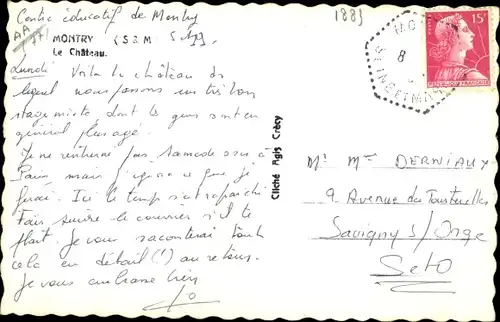 Centre éducatif de Montry
1889
MONTRY (S & M) S et M
Le Château.
Lundi Voila le château dans
lequel nous passons un très bon
stage mixte dont les gens sont en
général plus agé.
Je ne rentrerai pas samedi
Paris mais j'ignore ce que je
ferai. Ici le temps s'est rafraichi
Faire suivre le courrier s'il te
plait. Je vous raconterai tout
cela en détail (!) au retour.
Je vous embrasse bien
Jo
Cliché Agis Crécy
15F
REPUBLIQUE FRANÇAISE
8
SEINE ET MARNE
Mr Mme DERNIAUX
9 Avenue du Tourterelles
Savigny s/ Orge
S et O